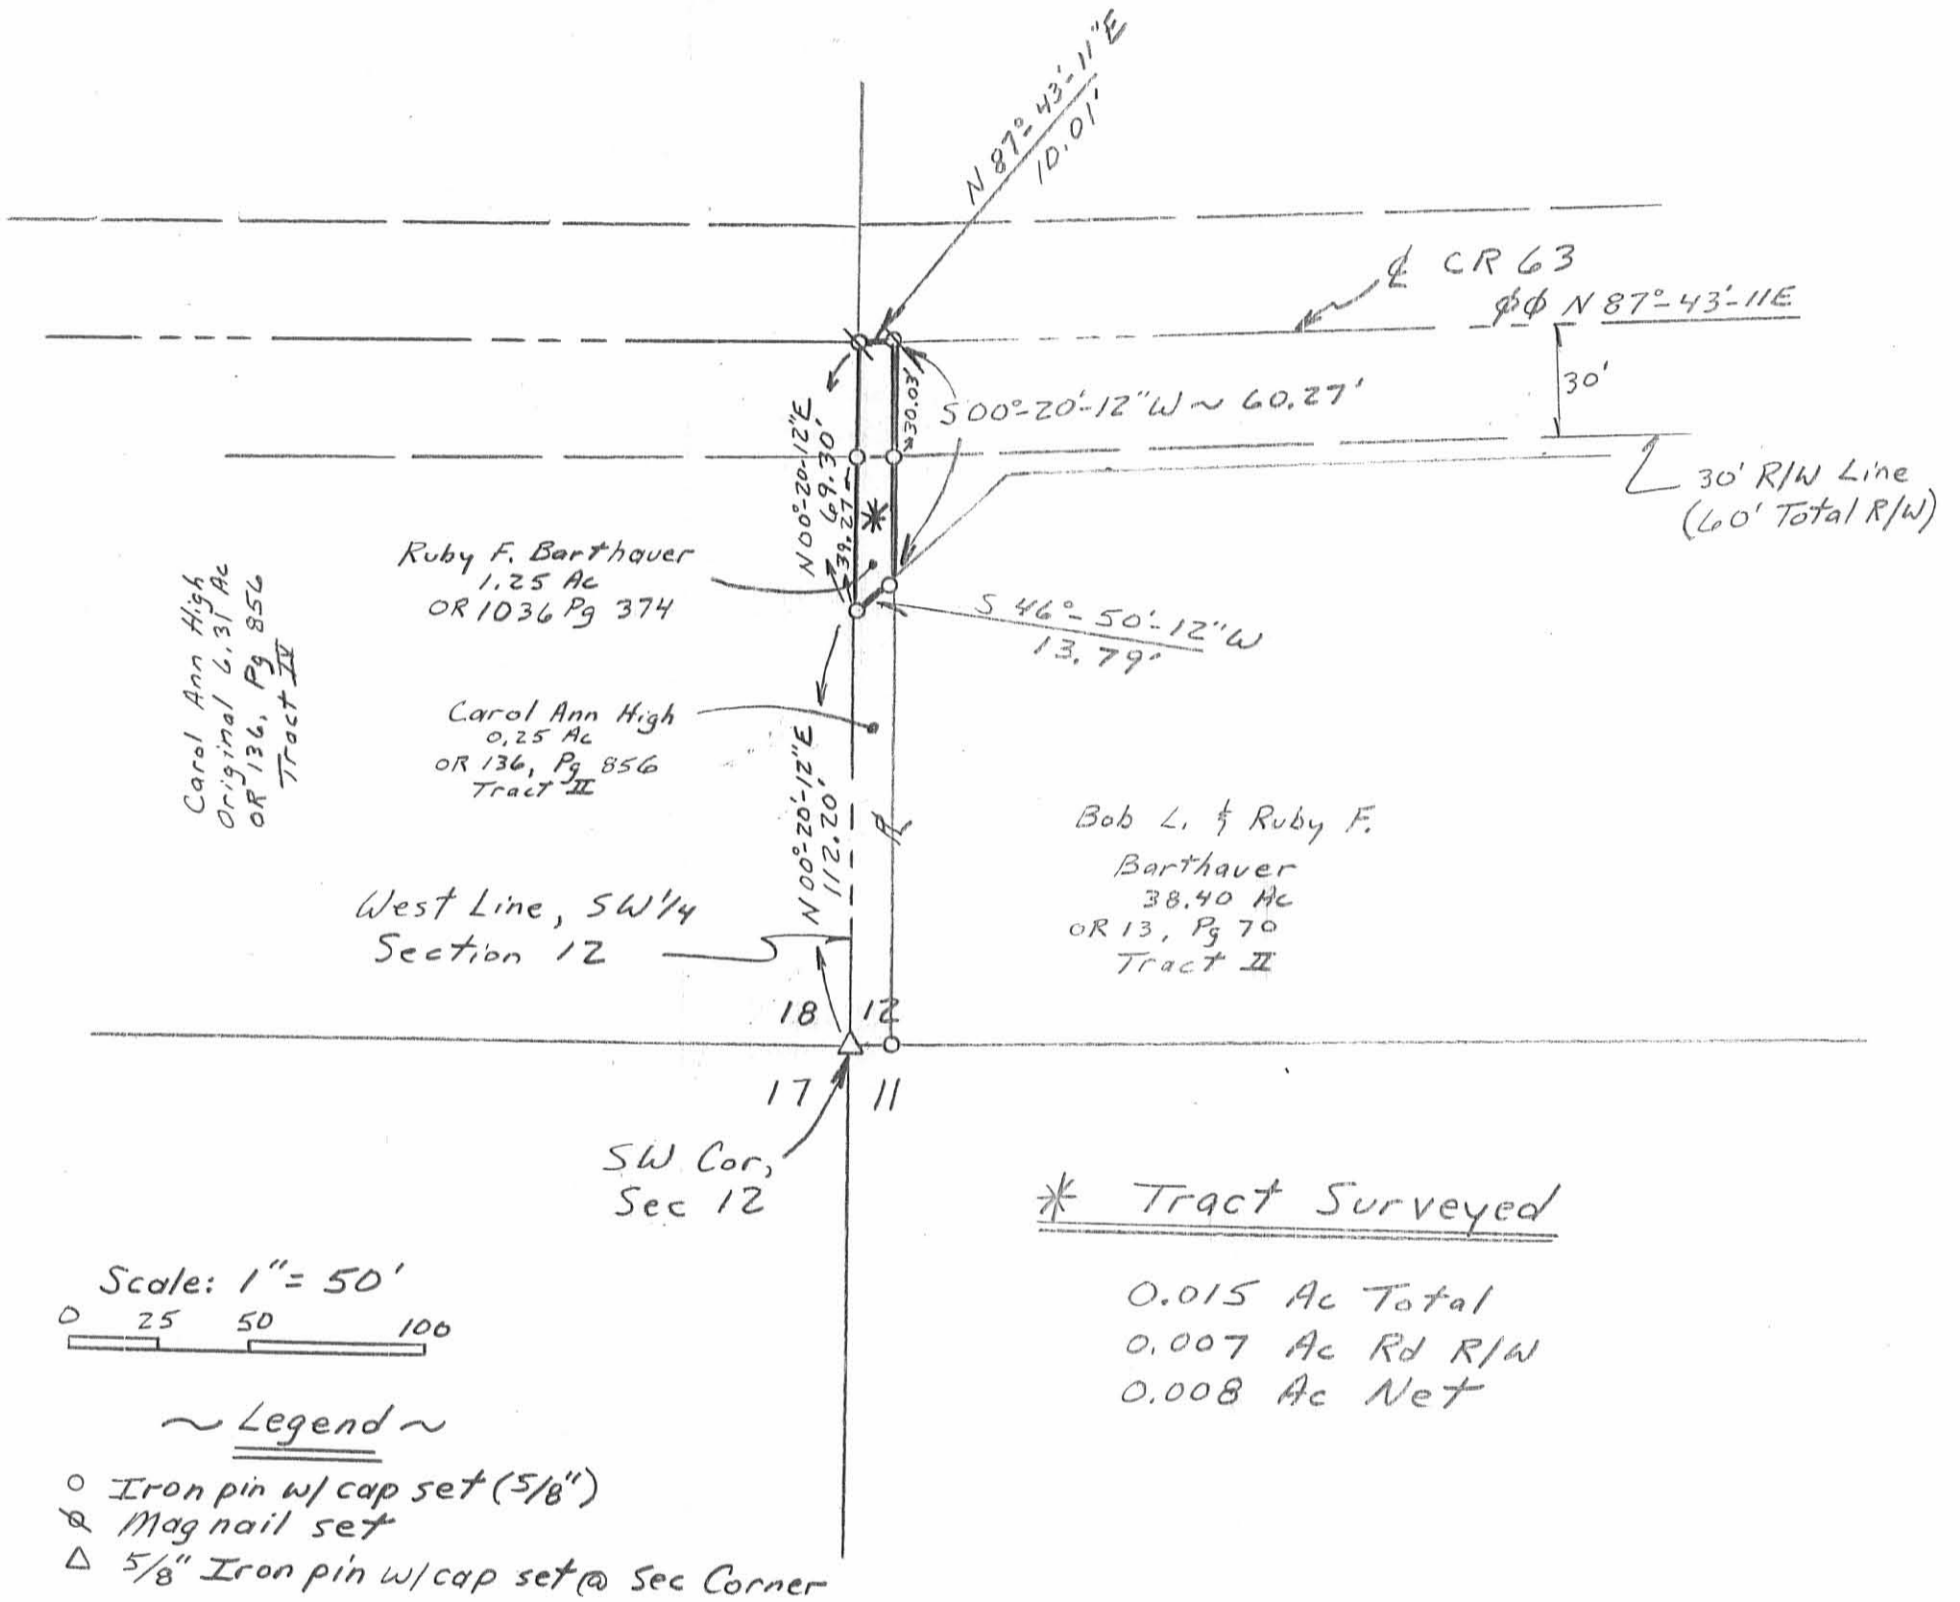 N 87°-43'-11"E
10.01'
℄ CR 63
N 87°-43'-11E
30'
S 00°-20'-12"W ~ 60.27'
30.03'
N 00°-20'-12"E
69.30'
39.27'
30' R/W Line
(60' Total R/W)
Ruby F. Barthauer
1.25 Ac
OR 1036 Pg 374
S 46°-50'-12"W
13.79'
Carol Ann High
Original 6.31 Ac
OR 136, Pg 856
Tract IV
Carol Ann High
0.25 Ac
OR 136, Pg 856
Tract II
N 00°-20'-12"E
112.20'
Bob L. & Ruby F.
Barthauer
38.40 Ac
OR 13, Pg 70
Tract II
West Line, SW 1/4
Section 12
18 12
17 11
SW Cor,
Sec 12
* Tract Surveyed
0.015 Ac Total
0.007 Ac Rd R/W
0.008 Ac Net
Scale: 1" = 50'
0 25 50 100
~ Legend ~
○ Iron pin w/ cap set (5/8")
Mag nail set
△ 5/8" Iron pin w/ cap set @ Sec Corner